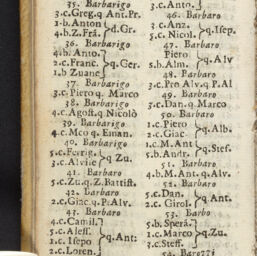 35. Barbarigo
3.c.Greg.q Ant.Pr.
1.b.Anton
4.b.Z.Frã. q.Gr.
36. Barbarigo
4.b.Anto.
2.c.Franc. q.Ger.
1.b Zuane
37. Barbarigo
3.c.Piero q. Marco
38. Barbarigo
4.c.Agost.q Nicolò
39. Barbarigo
4.c.Mco q. Eman.
40. Barbarigo
3.c.Alvise q Zu.
41. Barbaro
5.c.Zu.q.Z.Battist.
42. Barbaro
2.c.Giac.q.P.Alv.
43. Barbaro
4.c.Camil.
5.c.Aless.
1.c.Isepo q.Ant:
2.c.Loren.
3.c.Anto.
46. Barbaro
3.c.Anz.
5.c.Nicol. q.Isep.
47. Barbaro
Piero
5.b.Alm. q.Alv
48. Barbaro
3.c.Pro Alv.q P.Al
49. Barbaro
3.c.Dan.q.Marco
50. Barbaro
1.c.Piero
2.c.Giac q.Alb.
1.c.M.Ant
5.b.Andr. q.Stef.
51. Barbaro
4.b.M.Ant.q.Alv.
52. Barbaro
5.c.Dan.
2.c.Girol. q Ant.
53. Barbo
5.b.Sperã.
1.c.Marco q.Zu.
3.c.Stef.
54. Barozzi